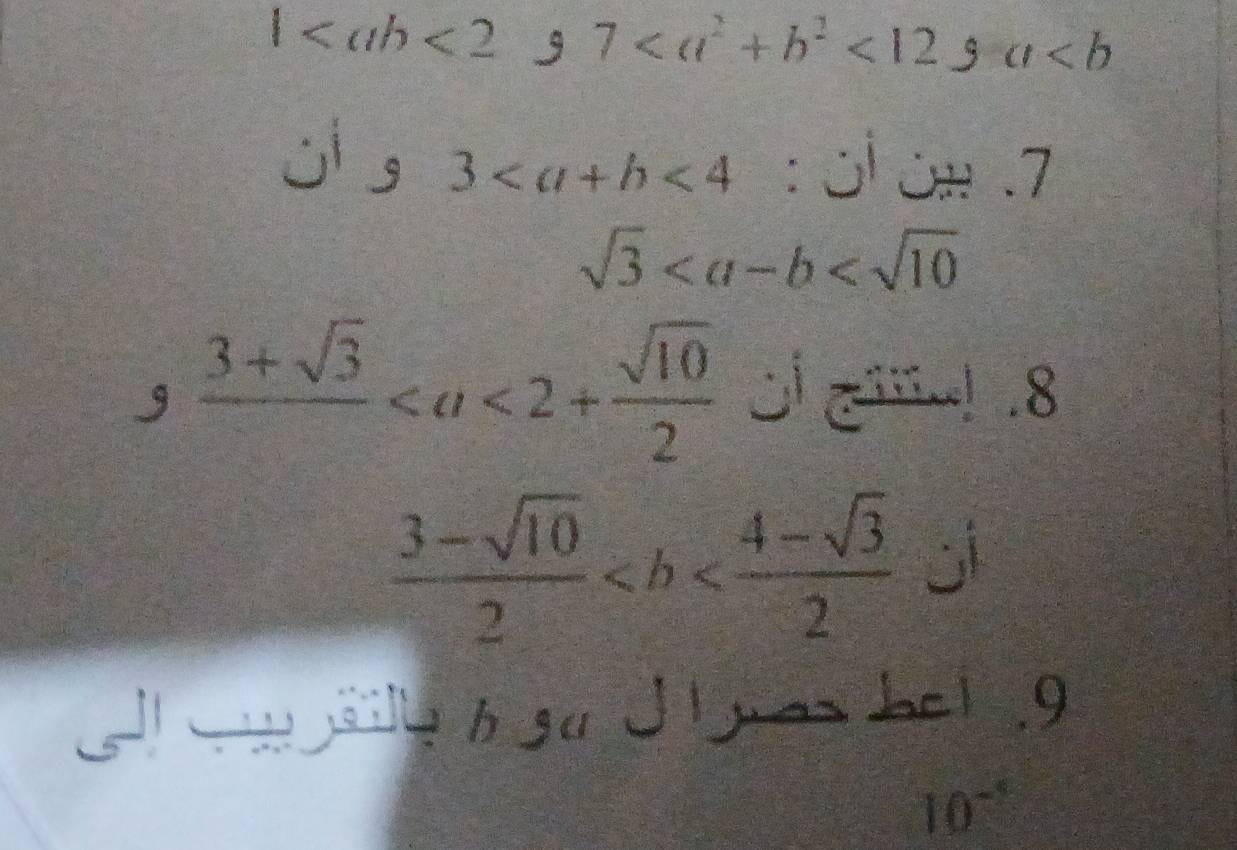 1 < ab < 2 و 7 < a² + b² < 12 و a < b
7. بين أن : 3 < a + b < 4 و أن
√3 < a − b < √10
8. إستنتج أن (3 + √3)/ < a < 2 + √10/2 و
أن (3 − √10)/2 < b < (4 − √3)/2
9. اعط حصرا ل a و b بالتقريب إلى
10⁻